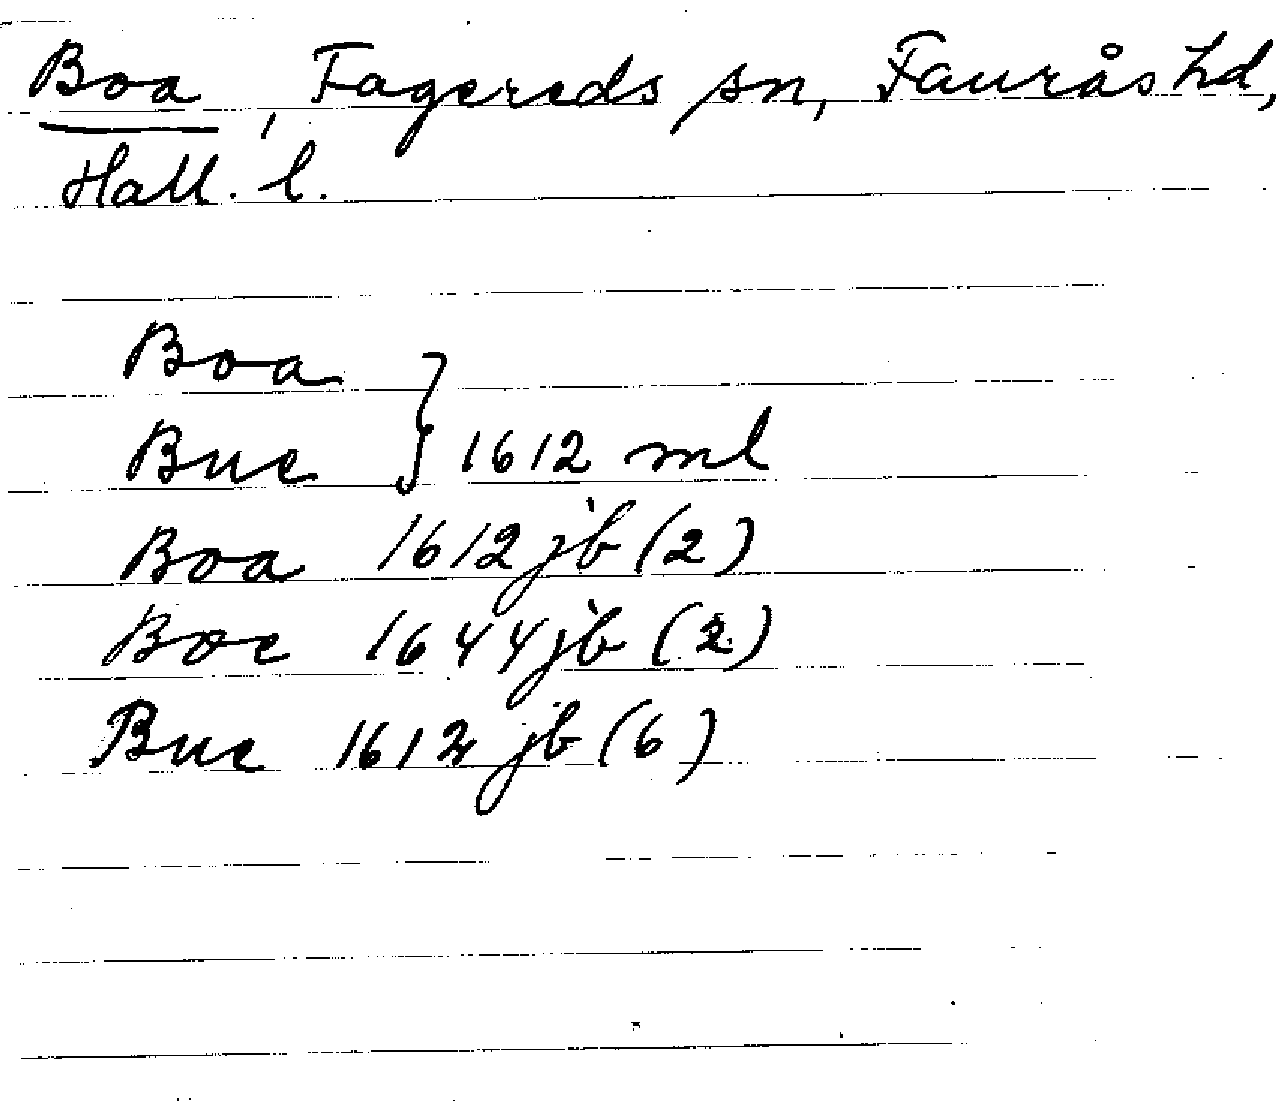 Boa, Fagereds sn, Fauråshd,
Hall. l.
Boa
Bue } 1612 ml
Boa 1612 jb (2)
Boe 1644 jb (2)
Bue 1612 jb (6)